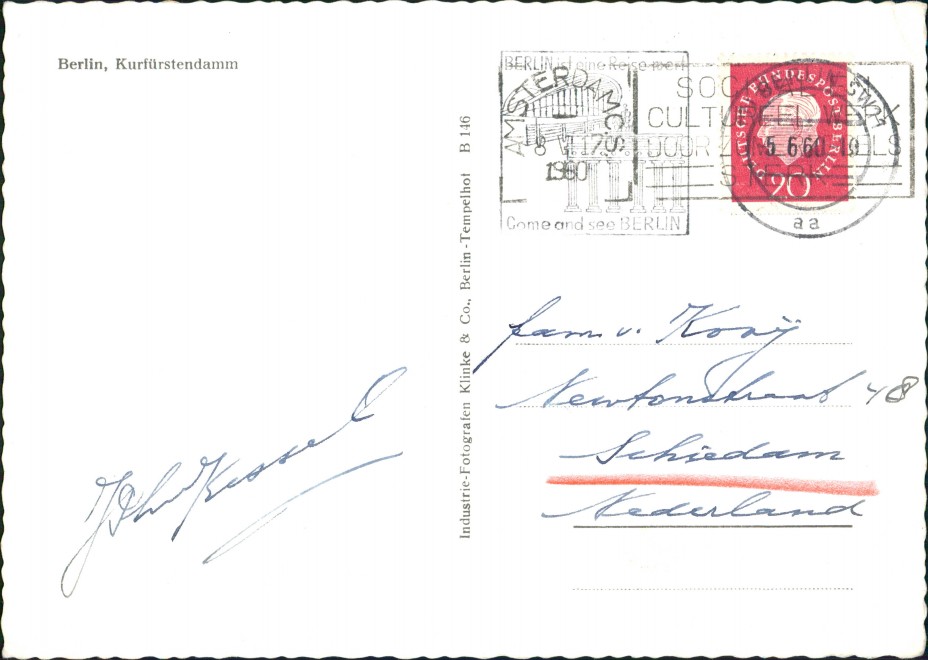 Berlin, Kurfürstendamm
BERLIN ist eine Reise wert
Come and see BERLIN
AMSTERDAM C.S.
8 VI 17
1960
SOCIAAL
CULTUREEL WERK
DOOR ZOMERZEGELS
STERK
DEUTSCHE BUNDESPOST BERLIN
20
BERLIN SW 11
5.6.60-19
aa
Industrie-Fotografen Klinke & Co., Berlin-Tempelhof B 146
fam. v. Kooÿ
Newtonstraat 48
Schiedam
Nederland
John Kessel